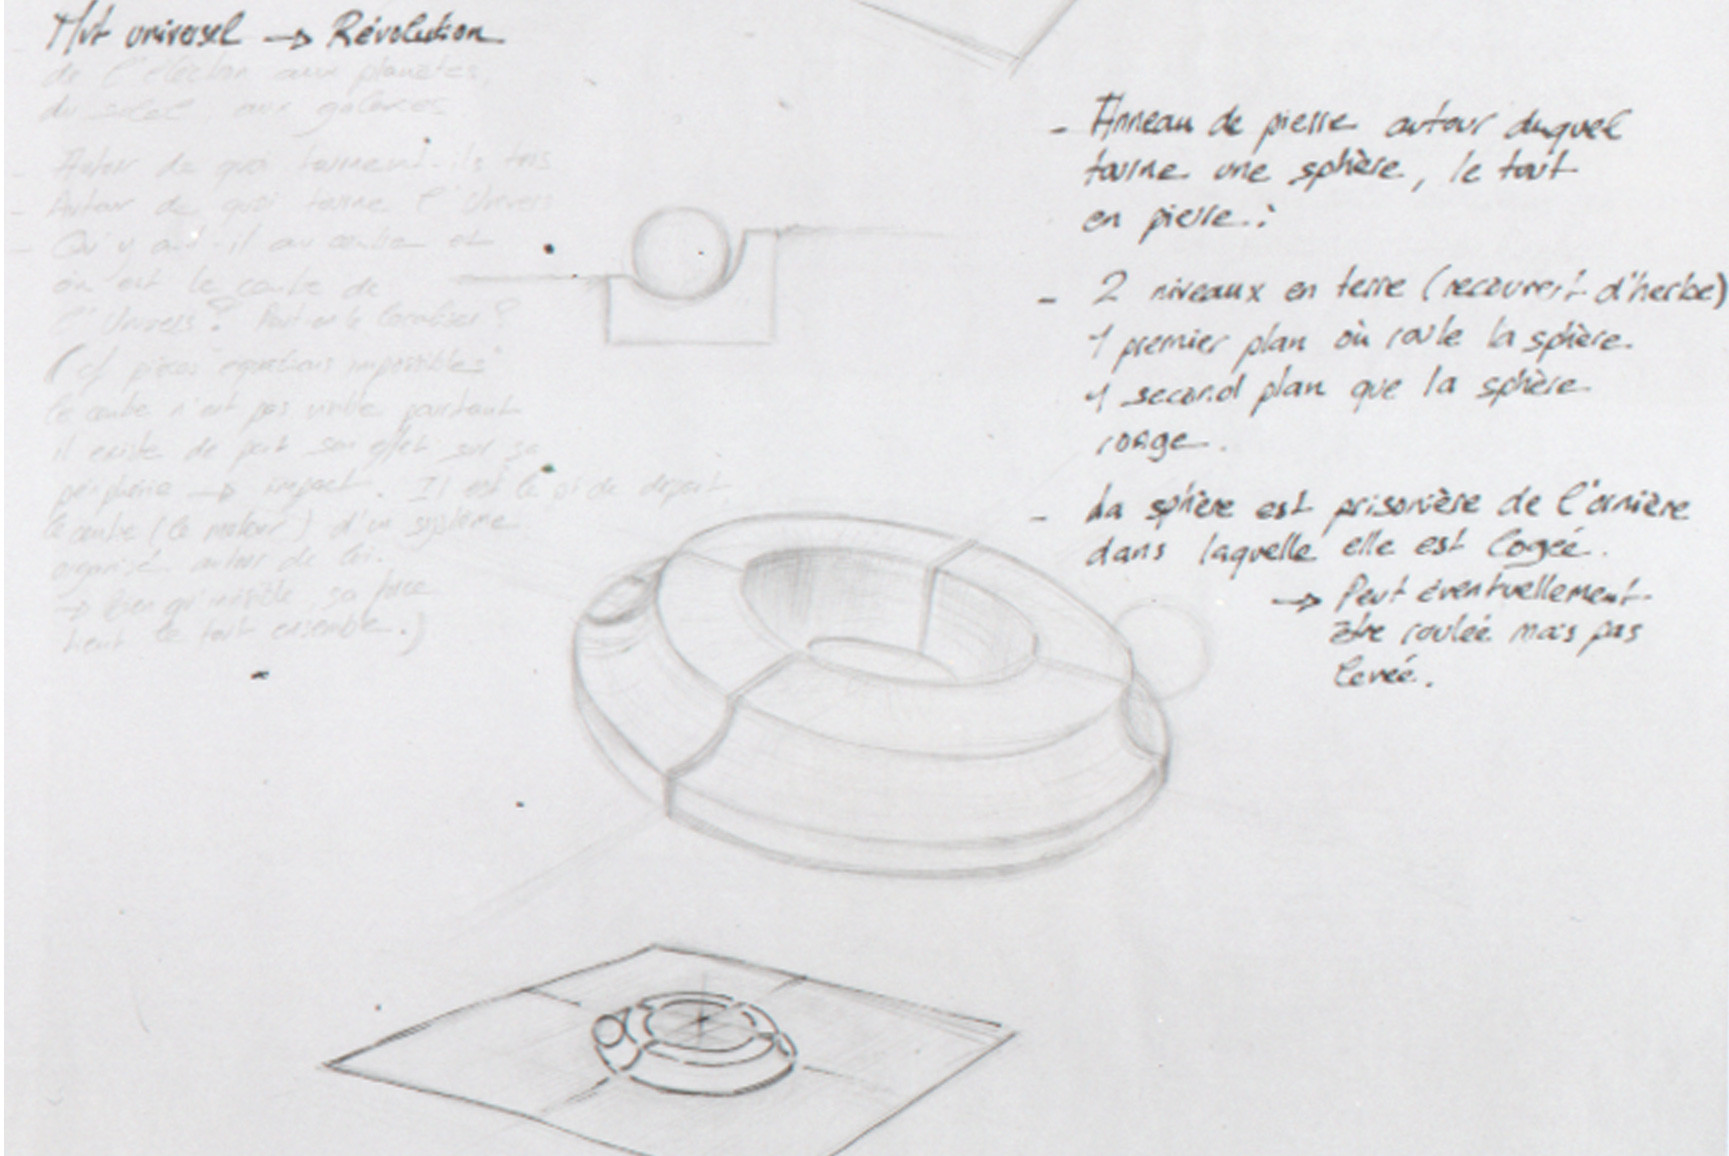 Mvt universel → Révolution
de l'électron aux planètes,
du soleil aux galaxies
- Autour de quoi tournent-ils tous
- Autour de quoi tourne l'Univers
- Qu'y a-t-il au centre et
où est le centre de
l'Univers? Peut-on le localiser?
(cf pièces "équations impossibles"
le centre n'est pas visible pourtant
il existe de part son effet sur sa
périphérie → impact. Il est le pt de départ
le centre (le moteur) d'un système
organisé autour de lui.
→ Bien qu'invisible, sa force
tient le tout ensemble.)
- Anneau de pierre autour duquel
tourne une sphère, le tout
en pierre.
- 2 niveaux en terre (recouvert d'herbe)
1 premier plan où roule la sphère.
1 second plan que la sphère
longe.
- La sphère est prisonière de l'ornière
dans laquelle elle est logée.
→ Peut éventuellement
être roulée mais pas
levée.